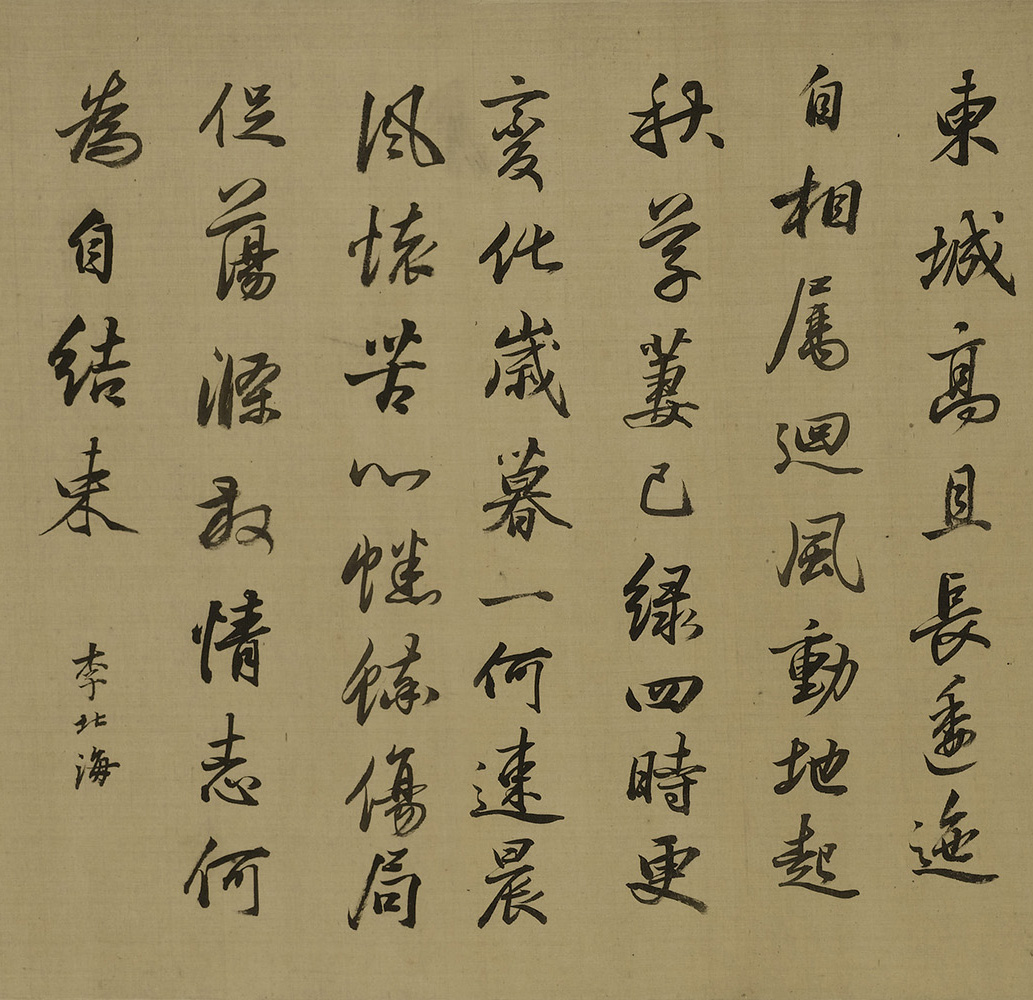 東城高且長逶迤
自相屬迴風動地起
秋草萋已緑四時更
變化歲暮一何速晨
風懷苦心蟋蟀傷局
促蕩滌情志何
為自結束
李北海